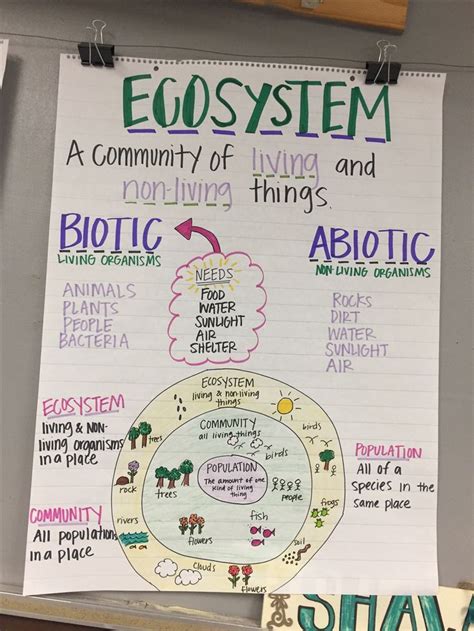 ECOSYSTEM
A COMMUNITY OF living and
non-living things.
BIOTIC
LIVING ORGANISMS
ANIMALS
PLANTS
PEOPLE
BACTERIA
NEEDS
FOOD
WATER
SUNLIGHT
AIR
SHELTER
ABIOTIC
NON-LIVING ORGANISMS
ROCKS
DIRT
WATER
SUNLIGHT
AIR
ECOSYSTEM
living & NON-
living organisms
in a place
COMMUNITY
All populations
in a place
ECOSYSTEM
living & non-living
things
COMMUNITY
all living things
birds
birds
trees
POPULATION
The amount of one
kind of living
thing
rock
trees
people
frogs
rivers
fish
flowers
soil
clouds
flowers
POPULATION
All of a
species in the
same place
SHA